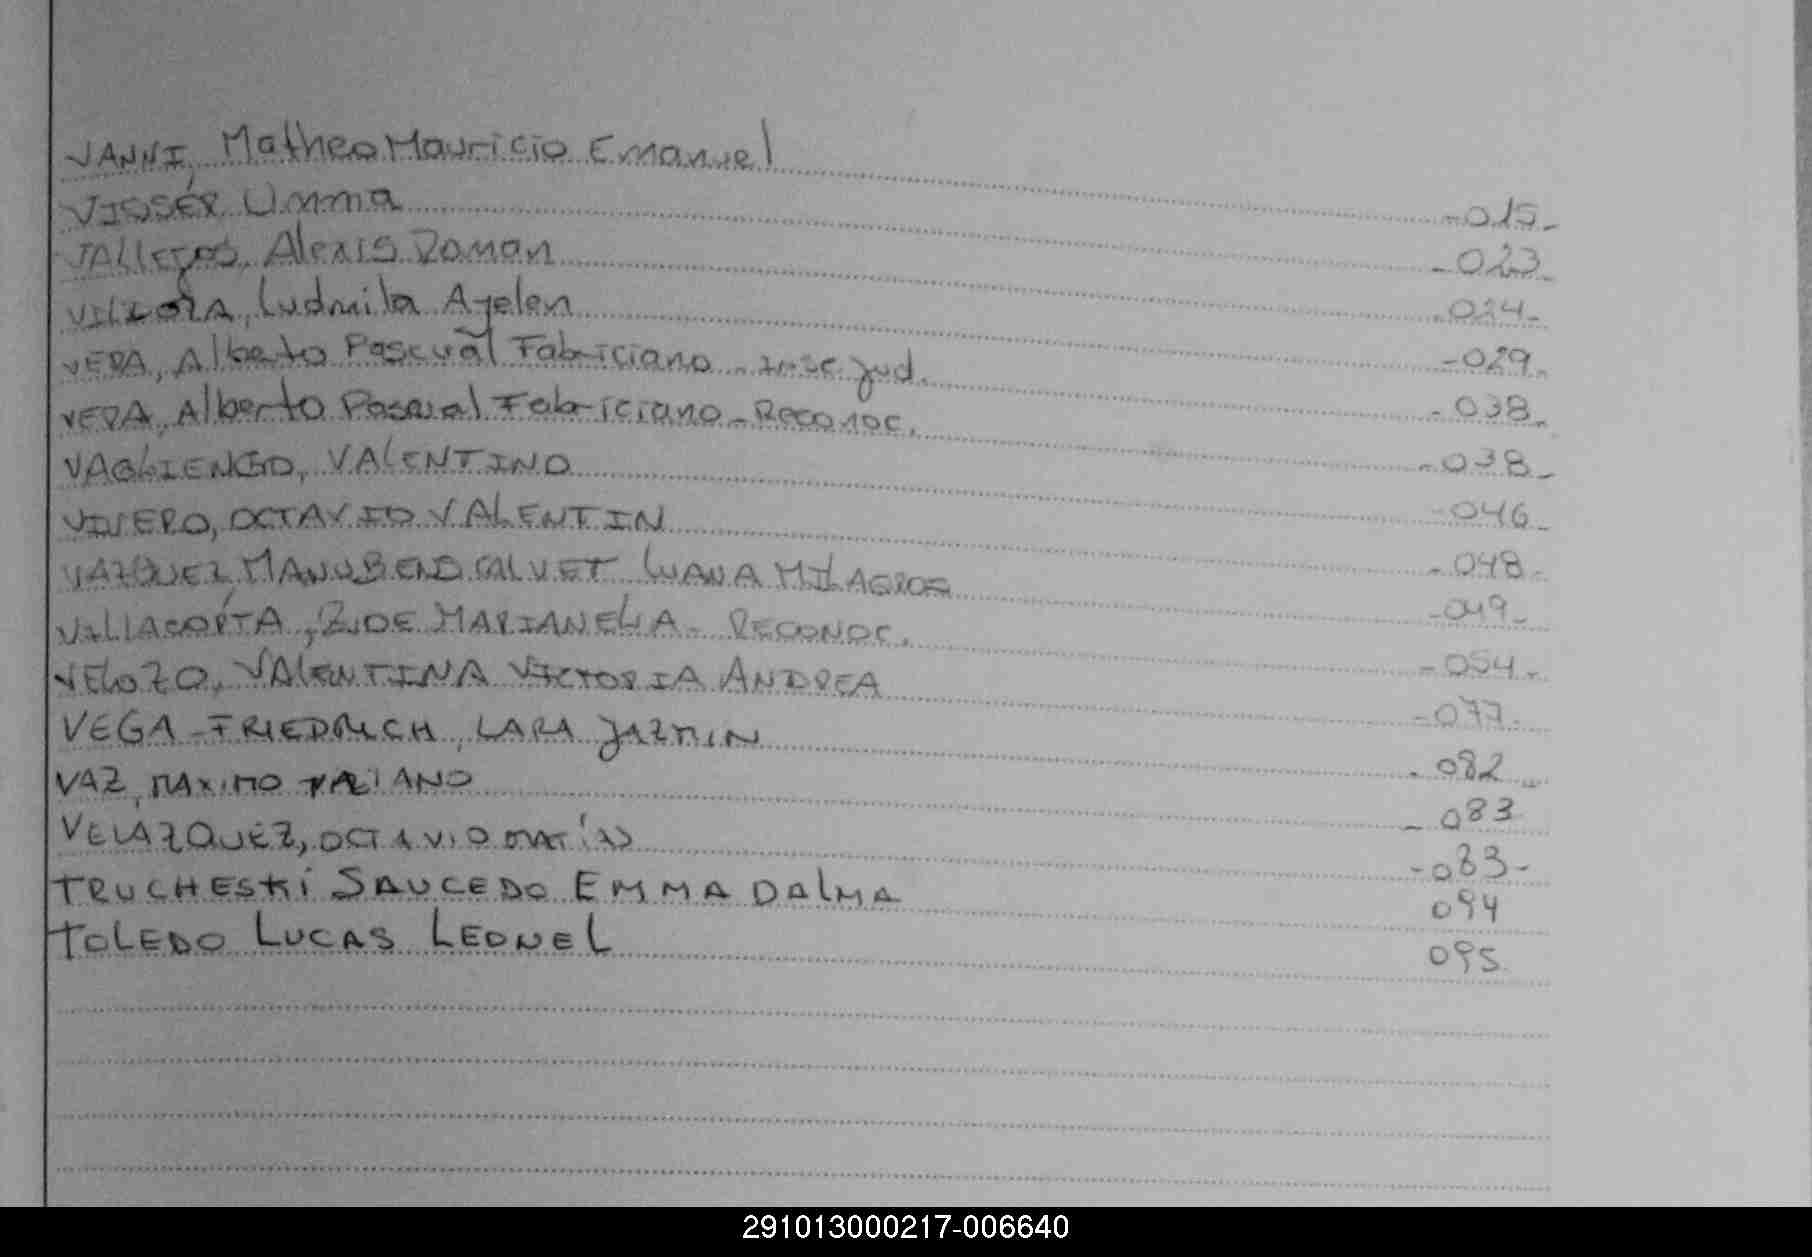 VANNI, Matheo Mauricio Emanuel -015-
VISSER Umma -023-
VALLEJOS, Alexis Roman -024-
VILLOTA, Ludmila Ayelen -029-
VERA, Alberto Pascual Fabriciano - Insc. Jud. -038-
VERA, Alberto Pascual Fabriciano - Reconoc. -038-
VAGLIENGO, VALENTINO -046-
VIVERO, OCTAVIO VALENTIN -048-
VAZQUEZ MANUBENS CALVET LUANA MILAGROS -049-
VILLACORTA, ZOE MARIANELLA - RECONOC. -054-
VELOZO, VALENTINA VICTORIA ANDREA -077-
VEGA-FRIEDRICH, LARA JAZMIN -082-
VAZ, MAXIMO -083
VELAZQUEZ, OCTAVIO MATÍAS -083-
TRUCHESKI SAUCEDO EMMA DALMA 094
TOLEDO LUCAS LEONEL 095
291013000217-006640